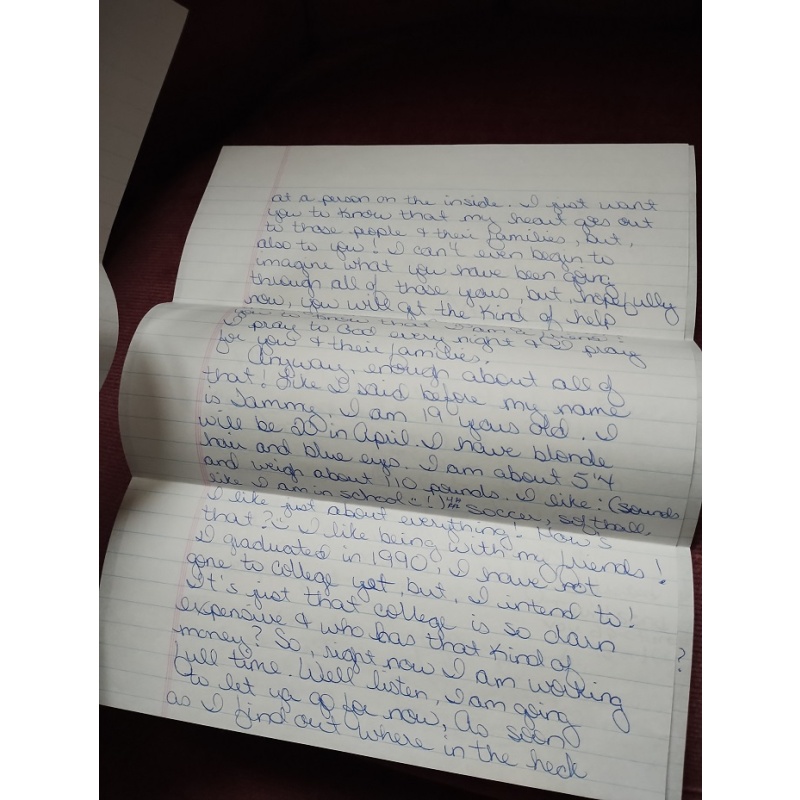 at a person on the inside. I just want
you to know that my heart goes out
to those people & their families, but,
also to you! I can't even begin to
imagine what you have been going
through all of those years, but, hopefully
now, you will get the kind of help
you to know that I am a friend!
I pray to God every night & I pray
for you & their families.
Anyway, enough about all of
that! Like I said before my name
is Tammy. I am 19 years old. I
will be 20 in April. I have blonde
hair and blue eyes. I am about 5'4
and weigh about 110 pounds. I like: (sounds
like I am in school!) soccer, softball,
I like just about everything! How's
that? I like being with my friends!
I graduated in 1990, I have not
gone to college yet, but, I intend to!
It's just that college is so darn
expensive & who has that kind of
money? So, right now I am working
full time. Well listen, I am going
to let ya go for now, As soon
as I find out where in the heck
?